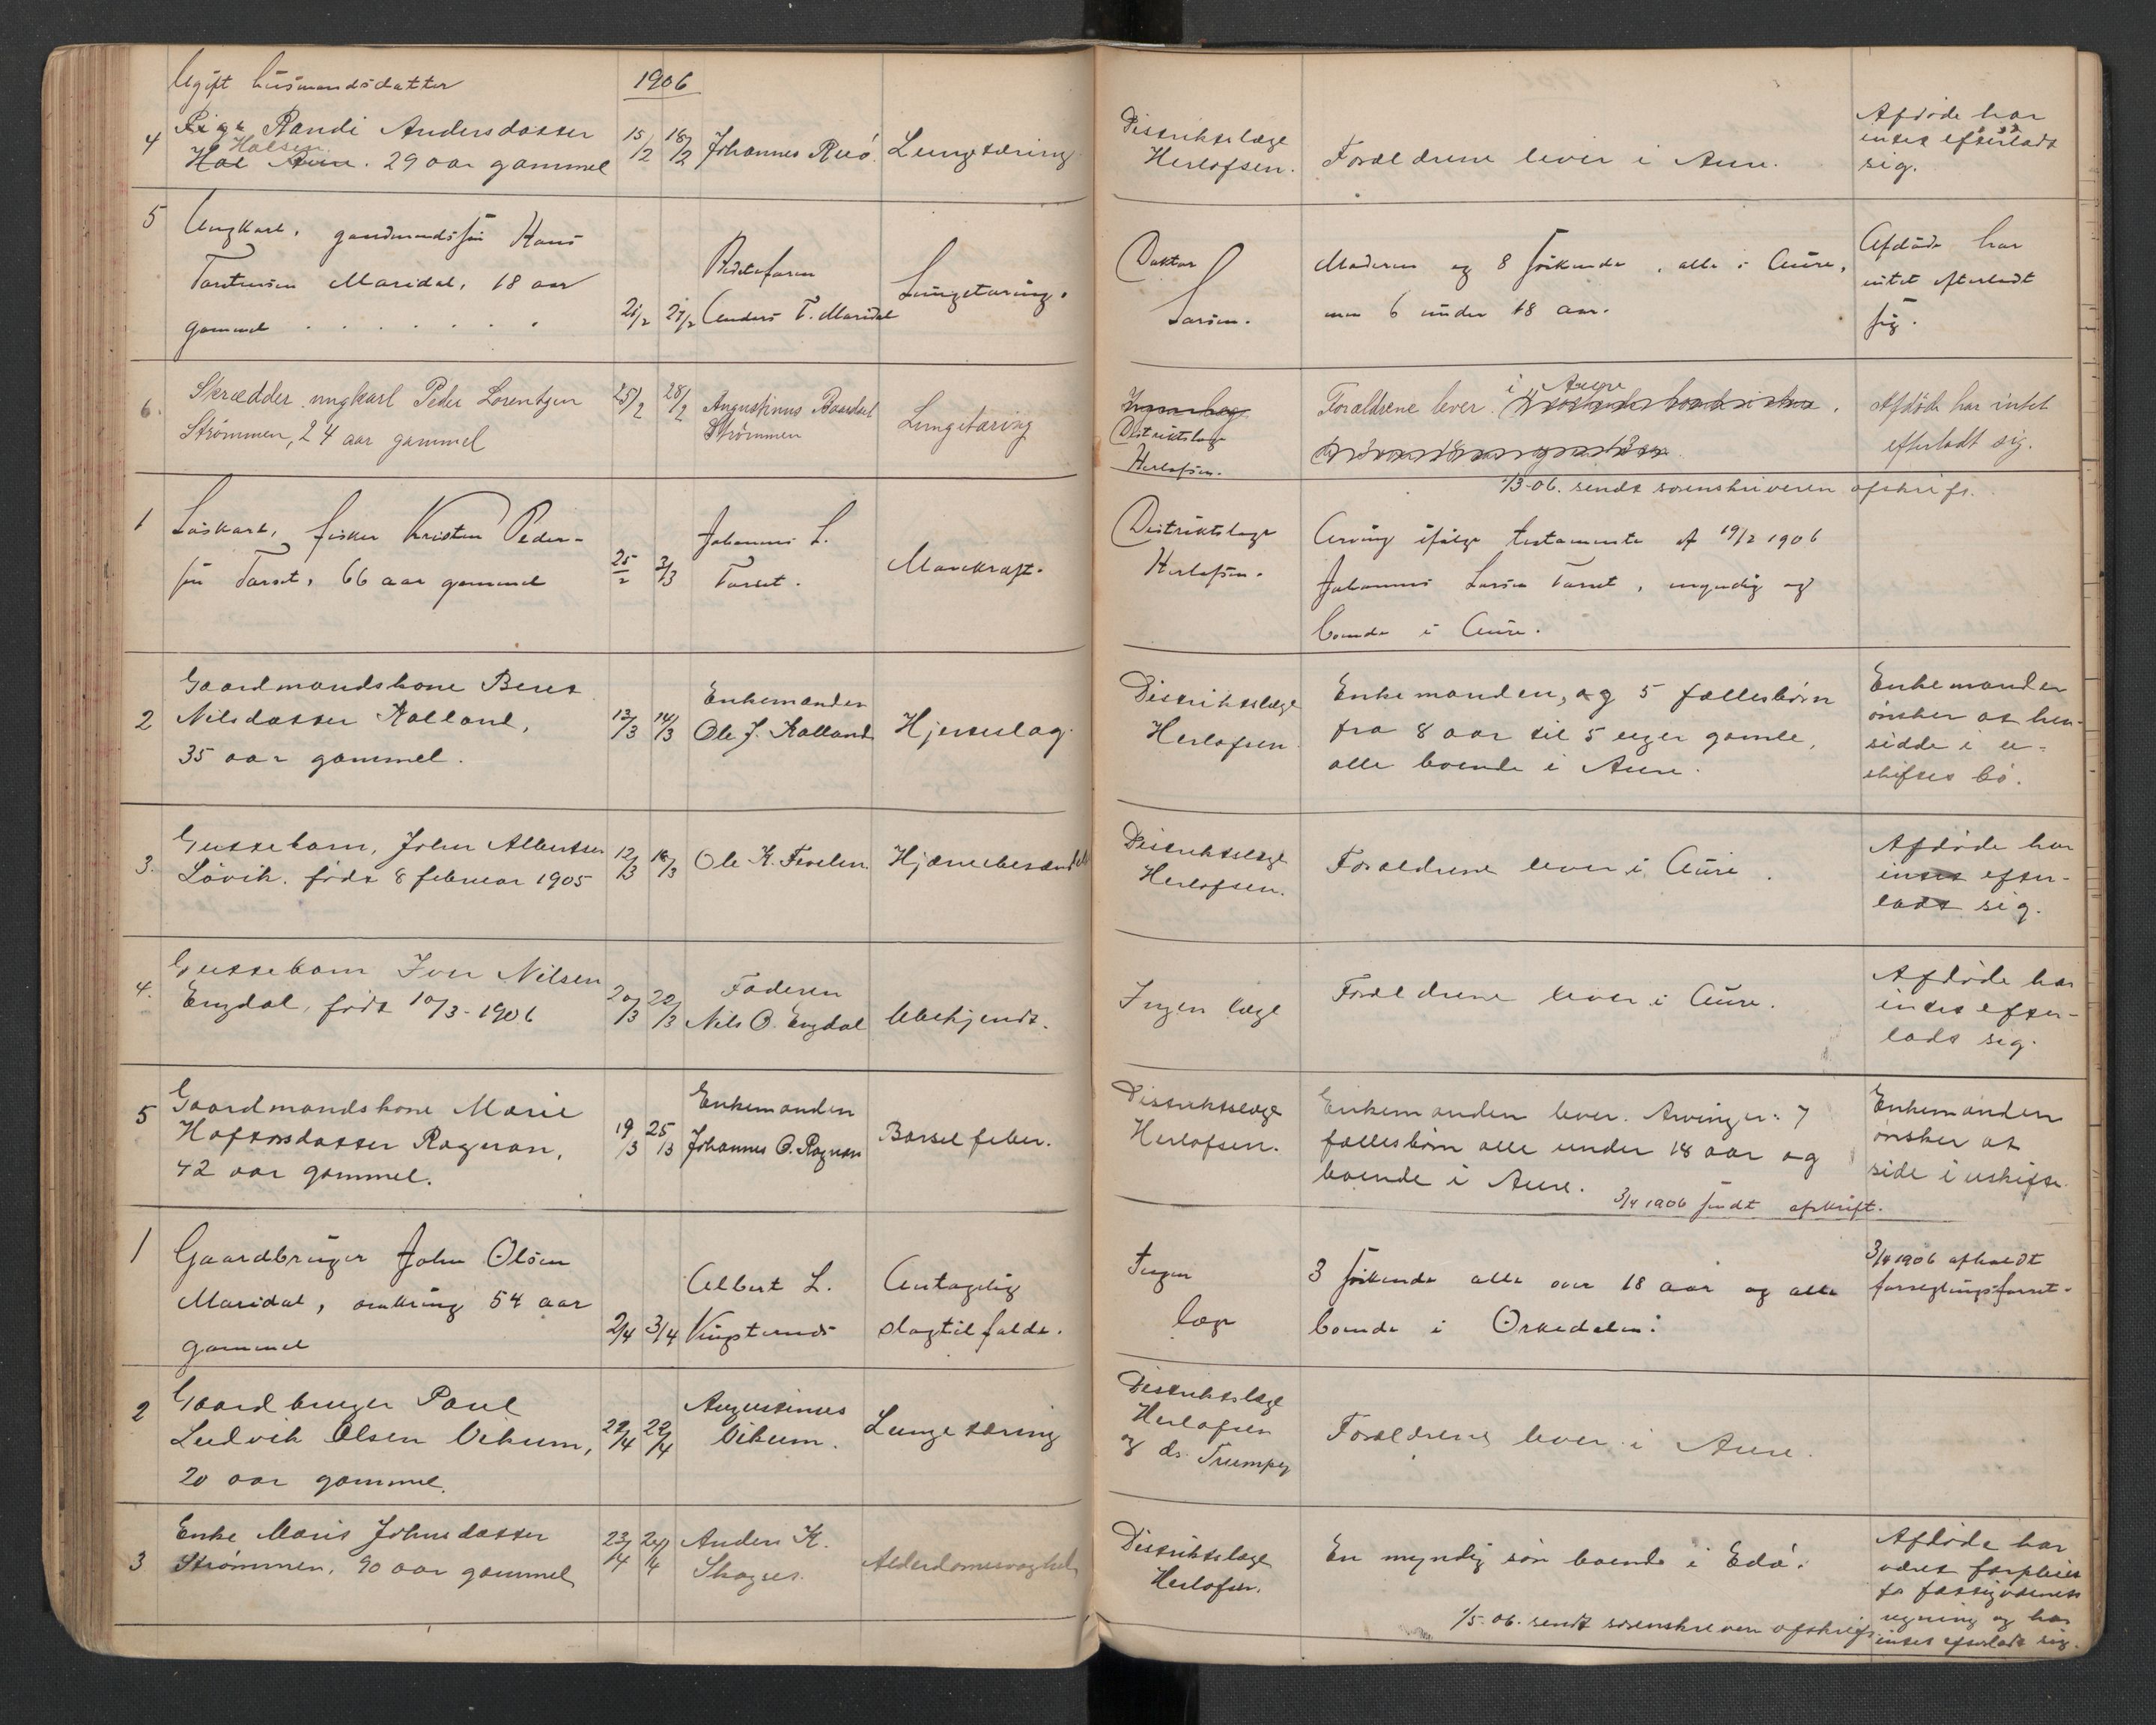 1906
Ugift husmandsdatter
4 Pige Randi Andersdatter
Halsen
Hal Aure. 29 aar gammel
15/2 18/2 Johannes Ruö. Lungetæring
Distriktslæge
Herlofsen.
Forældrene lever i Aure.
Afdøde har
intet efterladt
sig.
5 Ungkarl, gaardmandssøn Hans
Maridal, 18 aar
gammel
21/2 27/2
Anders T. Maridal
Lungetæring.
Doktor
Larsen.
Moderen og 8 søskende, alle i Aure,
6 under 18 aar.
Afdøde har
intet efterladt
sig.
6. Skrædder ungkarl Peder Lorentzen
Strømmen, 24 aar gammel
25/2 28/2
Augustinus Baardset
Strømmen
Lungetæring
Distriktslæge
Herlofsen.
i Aure
Forældrene lever
Afdøde har intet
efterladt sig.
1/3-06. sendt sorenskriveren afskrift.
1 Løskarl, fisker Kristen Peder-
sen Tarset, 66 aar gammel
25/2 2/3
Johannes L.
Tarset.
Mavekræft.
Distriktslæge
Herlofsen.
Arving ifølge testamente af 19/2 1906
Johannes Larsen Tarset, myndig og
boende i Aure.
2 Gaardmandskone Beret
Nilsdatter Kalland,
35 aar gammel.
12/3 14/3
Enkemanden
Ole J. Kalland
Hjerteslag.
Distriktslæge
Herlofsen
Enkemanden, og 5 fællesbörn
fra 8 aar til 5 uger gamle,
alle boende i Aure.
Enkemanden
ønsker at hen-
sidde i u-
skiftet bo.
3. Guttebarn, John Albertsen
Lövik. födt 8 februar 1905
12/3 16/3 Ole K. Hjernebetændelse
Distriktslæge
Herlofsen.
Forældrene lever i Aure.
Afdøde har
intet efter-
ladt sig.
4. Guttebarn Iver Nilsen
Engdal, födt 10/3-1906
20/3 22/3
Faderen
Nils O. Engdal
Ubekjendt.
Ingen læge
Forældrene lever i Aure.
Afdøde har
intet efter-
ladt sig.
5 Gaardmandskone Marie
Hafstensdatter Rognan,
42 aar gammel.
19/3 25/3
Enkemanden
Johannes O. Rognan
Barselfeber.
Distriktslæge
Herlofsen.
Enkemanden lever. Arvinger: 7
fællesbörn alle under 18 aar og
boende i Aure.
3/4 1906 sendt afskrift.
Enkemanden
ønsker at
side i uskifte.
1 Gaardbruger John Olsen
Maridal, omkring 54 aar
gammel
2/4 3/4
Albert L.
Antagelig
slagtilfælde.
Ingen
læge
3 søskende alle over 18 aar og alle
boende i Orkedalen.
3/4 1906 afholdt
forseglingsforret-
2 Gaardbruger Paul
Ludvik Olsen Vikum,
20 aar gammel.
22/4 22/4
Augustinus
Vikum.
Lungetæring
Distriktslæge
Herlofsen
og dr. Trumpy
Forældrene lever i Aure.
3 Enke Marit Johnsdatter
Strømmen, 90 aar gammel
23/4 24/4
Anders K.
Skogset.
Alderdomssvaghed
Distriktslæge
Herlofsen.
En myndig sön boende i Edö.
Afdøde har
været forpleiet
for fattigvæsenets
regning og har
intet efterladt sig.
1/5-06. sendt sorenskriveren afskrift.